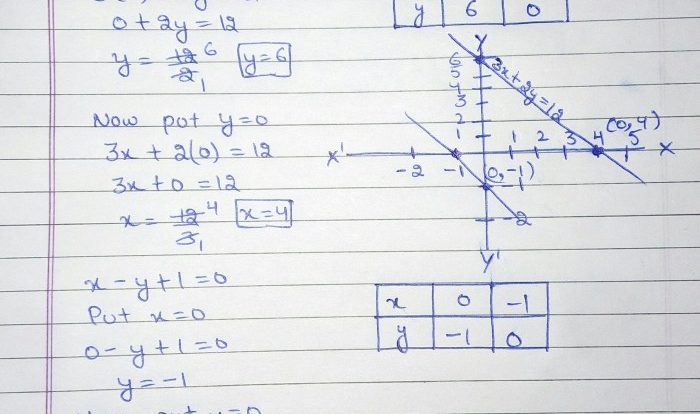 0 + 2y = 12
y = 12/2 6 1 y=6
Now put y=0
3x + 2(0) = 12
3x + 0 = 12
x = 12/3 4 1 x=4
x - y + 1 = 0
Put x=0
0 - y + 1 = 0
y = -1
y 6 0
Y
6
5
4
3
2
1
3x + 2y = 12
(0, 4)
X' -2 -1 1 2 3 4 5 X
(0, -1)
-1
-2
Y'
x 0 -1
y -1 0